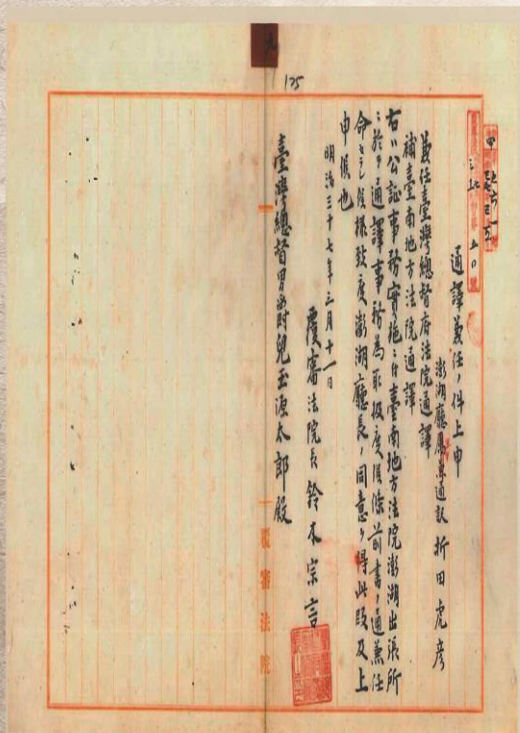 125
通譯兼任ノ件上申
澎湖廳属兼通訳 折田虎彦
兼任臺灣總督府法院通譯
補臺南地方法院通譯
右ハ公証事務實施ニ付臺南地方法院澎湖出張所
ニ於テ通譯事務為取扱度候條前書ノ通兼任
命セラレ候様致度澎湖廳長ノ同意ヲ得此段及上
申候也
明治三十七年三月十一日
覆審法院長 鈴木宗言
臺灣總督男爵兒玉源太郎殿
覆審法院